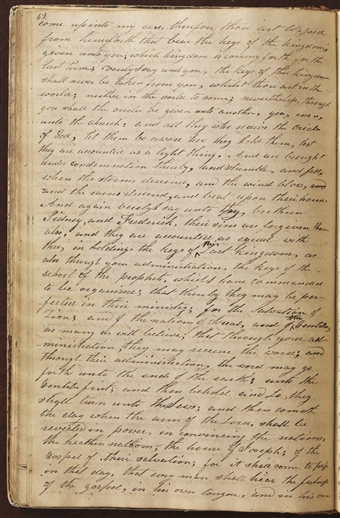 42
come up into my ears, therefore thou art blessed
from henceforth that bear the keys of the kingdom
given unto you; which kingdom is coming forth for the
last time; Verily I say unto you, the keys of this kingdom
shall never be taken from you, whilst thou art in the
world; neither in the world to come; nevertheless, through
you shall the oracles be given unto another, yea, even
unto the church, and all they who receive the oracles
of God, let them beware how they hold them, lest
they are accounted as a light thing. And are brought
under condemnation thereby, and stumble, and fall,
when the storms descend, and the winds blow, and
and the rains descend, and beat upon their house.
And again verily I say unto thy brethren
Sidney, and Frederick, their sins are forgiven them
also, and they are accounted as equal with
thee, in holding the keys of this last kingdom, as
also through your administration, the keys of the
school of the prophets, which I have commanded
to be organised; that thereby they may be per-
fected in their ministry; for the salvation of
Zion; and of the nations of Israel, and of the Gentiles,
as many as will believe; that through your ad-
ministration they may receive the word; and
through their administration, the word may go
forth unto the ends of the earth; unto the
Gentiles first; and then behold, and Lo, they
shall turn unto the Jews; and then cometh
the day when the arm of the Lord, shall be
revealed in power, in convincing the nations,
the heathen nations, the house of Joseph; of the
Gospel of their salvation; for it shall come to pass
in that day, that evry man shall hear the fulness
of the gospel, in his own tongue, and in his own